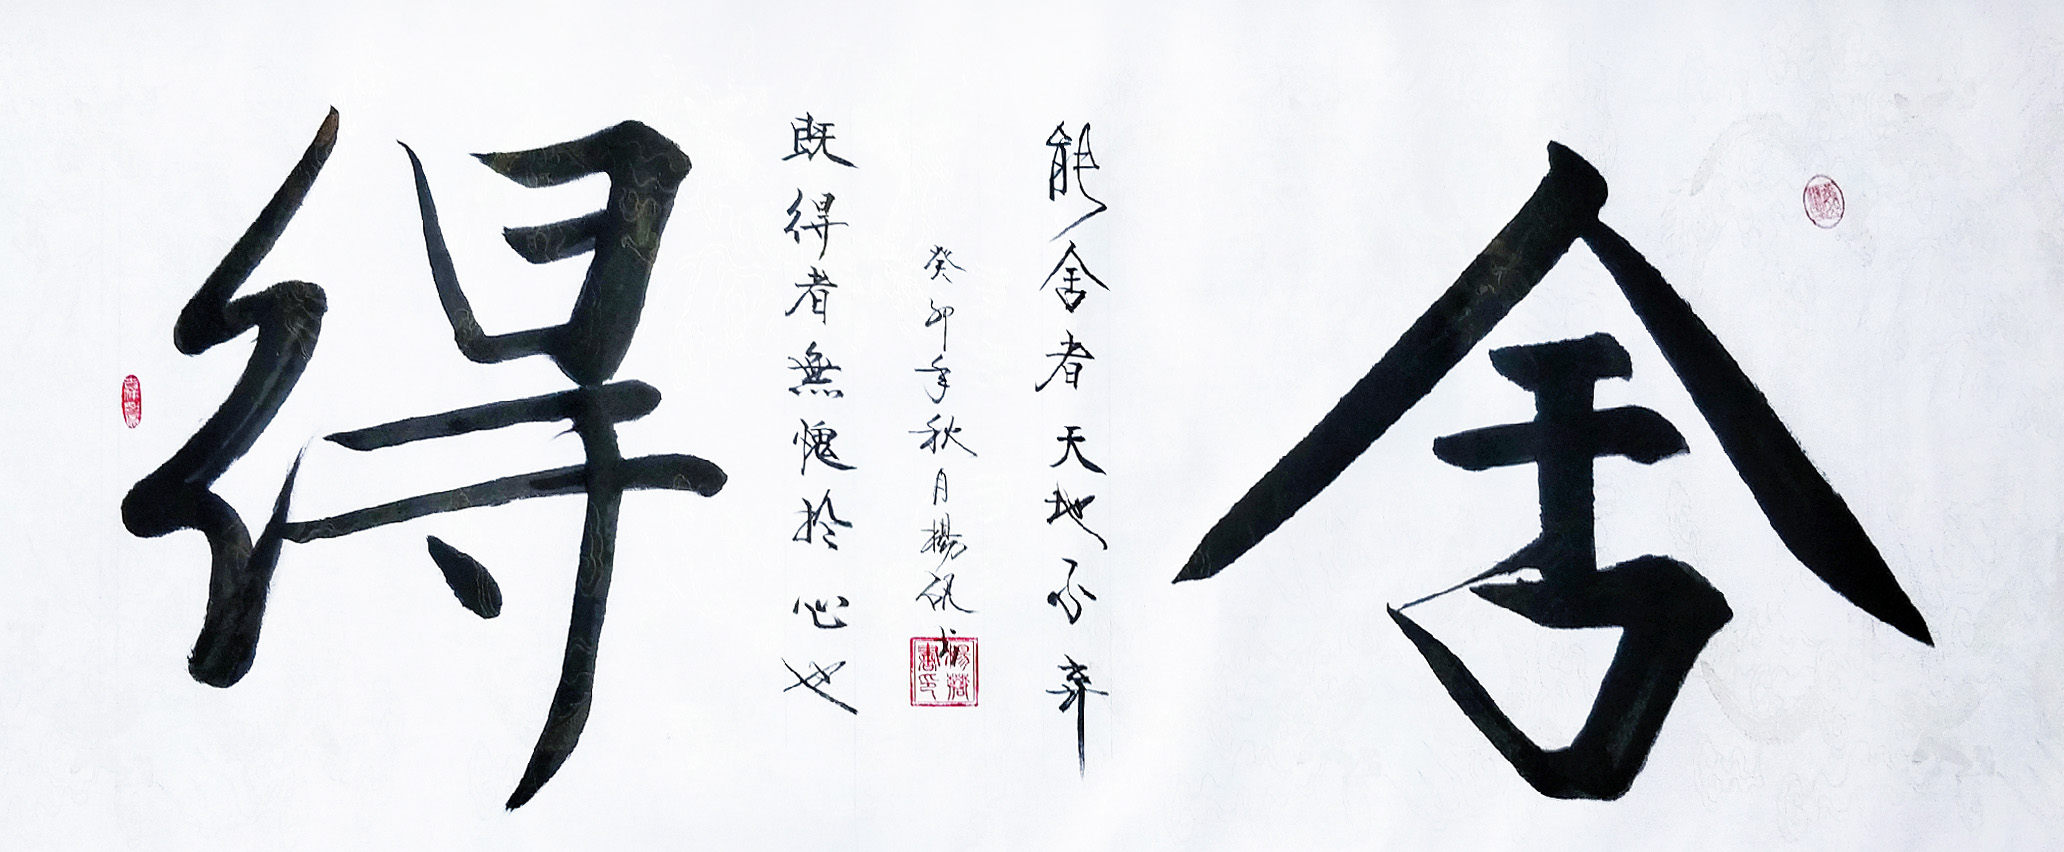 舍
能舍者天地不弃
癸卯年秋月楊
既得者無愧於心也
得